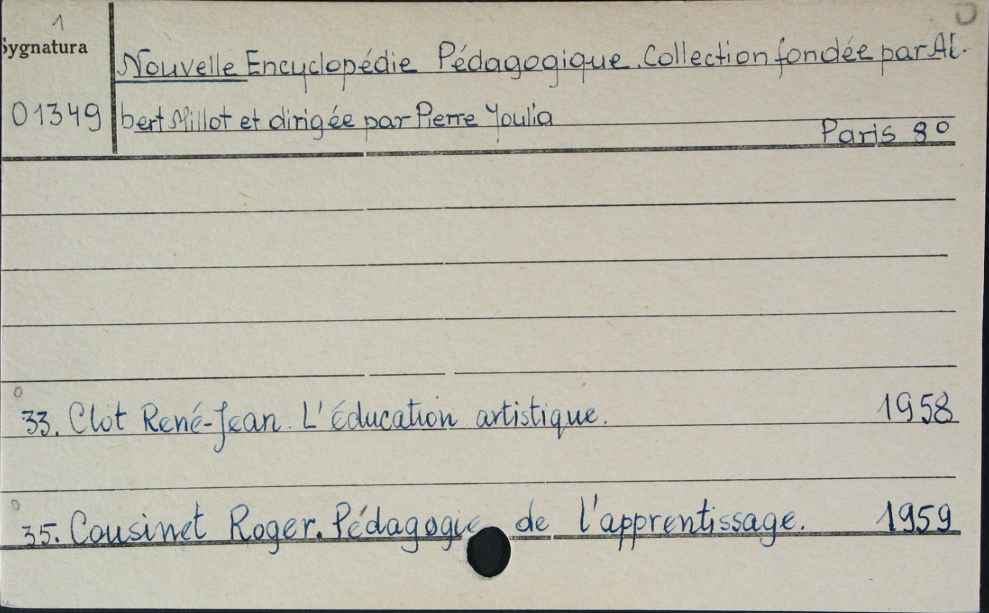 1
Sygnatura
Nouvelle Encyclopédie Pédagogique. Collection fondée par Al-
01349
bert Millot et dirigée par Pierre Youlia
Paris 8°
33. Clot René-Jean. L'éducation artistique. 1958
35. Cousinet Roger. Pédagogie de l'apprentissage. 1959